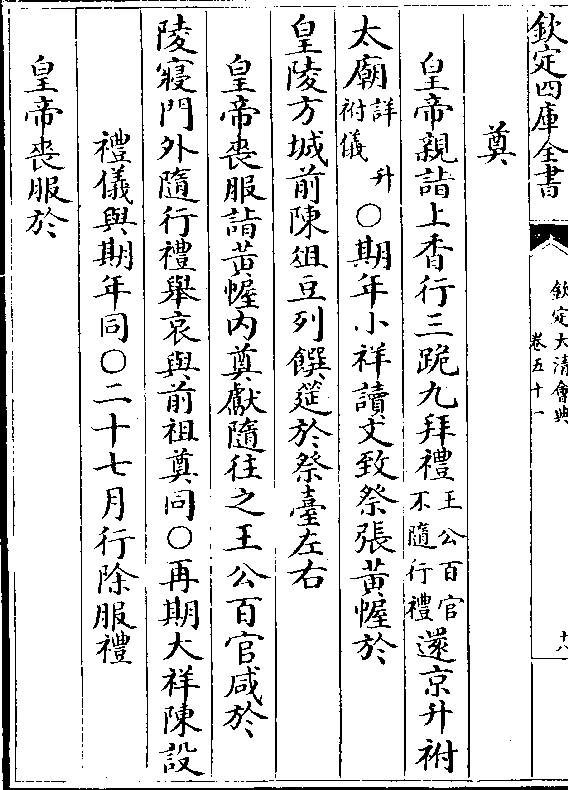 欽定四庫全書
欽定大清會典
卷五十一
十八
奠
皇帝親詣上香行三跪九拜禮王公百官不隨行禮還京升祔
太廟詳升祔儀○期年小祥讀文致祭張黃幄於
皇陵方城前陳俎豆列饌筵於祭臺左右
皇帝喪服詣黃幄內奠獻隨往之王公百官咸於
陵寢門外隨行禮舉哀與前祖奠同○再期大祥陳設
禮儀與期年同○二十七月行除服禮
皇帝喪服於